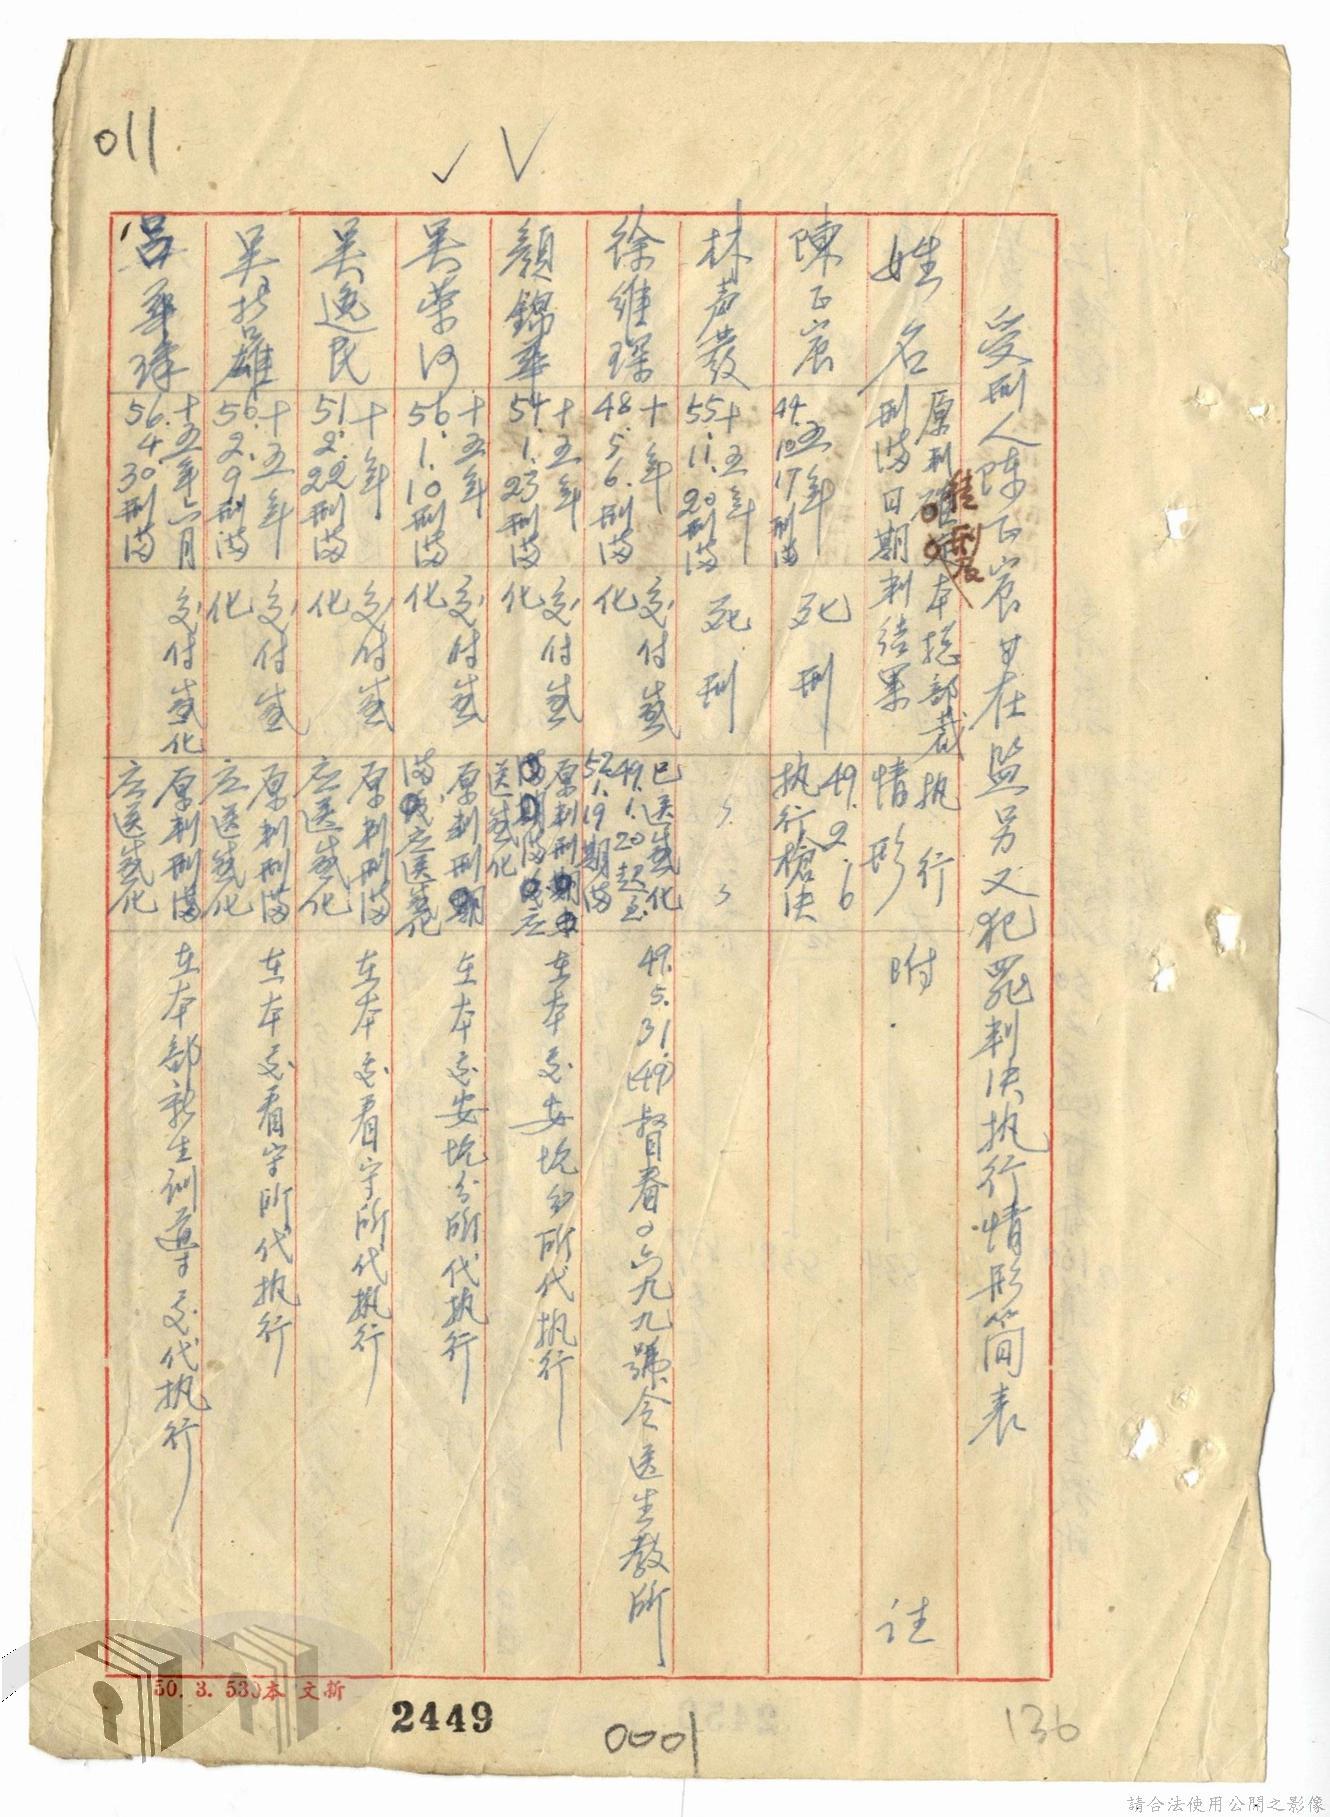 011
受刑人陳正宸等在監另又犯罪判決執行情形簡表
姓名
原判徒刑及
刑滿日期
本总部裁
判结果
执行
情形
附註
陳正宸
五年
44.10.17刑滿
死刑
49.2.16
执行槍决
林声發
十五年
55.11.20刑滿
死刑
〃 〃
徐維琛
十年
48.5.6.刑滿
交付感
化
已送感化
49.1.20起至
52.1.19期滿
49.5.31.(49)督眷0六九九號令送生教所
顏錦華
十五年
54.1.23刑滿
交付感
化
原判刑
滿应
送感化
在本部安坑分所代執行
吳榮河
十五年
56.1.10刑滿
交付感
化
原判刑
滿应送感化
在本部安坑分所代執行
吳逸民
十年
51.2.22刑滿
交付感
化
原判刑滿
应送感化
在本部看守所代執行
吳
雄
十五年
56.2.9刑滿
交付感
化
原判刑滿
应送感化
在本部看守所代執行
呂華璋
十五年六月
56.4.30刑滿
交付感化
原判刑滿
应送感化
在本部新生訓導處代执行
50. 3. 530本 文新
2449
0001
136
請合法使用公開之影像